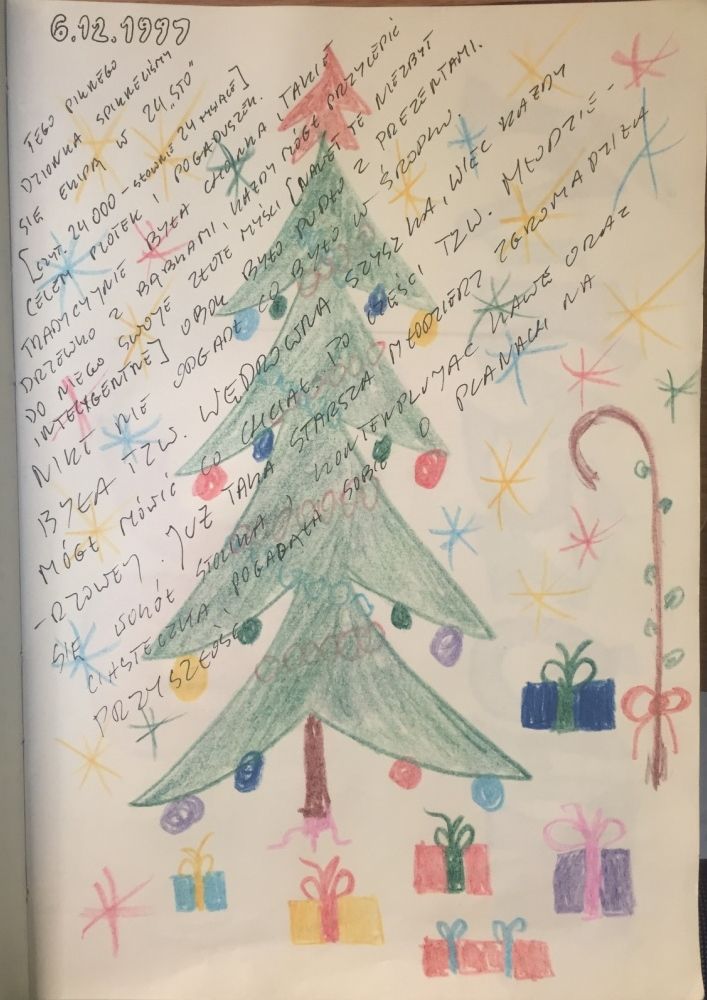 6.12.1997
TEGO PIĘKNEGO
DZIONKA SPIKNĘLIŚMY
SIĘ EKIPĄ W 24 „STO”
[CZYT. 24 000 - SŁOWNIE 24 TYSIĄCE]
CELEM PLOTEK I POGADUSZEK.
TRADYCYJNIE BYŁA CHOINKA, TAKIE
DRZEWKO Z BĄBKAMI, KAŻDY MÓGŁ PRZYLEPIĆ
DO NIEGO SWOJE ZŁOTE MYŚLI [NAWET TE NIEZBYT
INTELYGENTNE] OBOK BYŁO PUDŁO Z PREZENTAMI.
NIKT NIE ODGADŁ CO BYŁO W ŚRODKU.
BYŁA TZW. WĘDROWNA SZYSZKA, WIĘC KAŻDY
MÓGŁ MÓWIĆ CO CHCIAŁ. DO CZĘŚCI TZW. MŁODZIE-
-RZOWEJ. JUŻ TAKA STARSZA MŁODZIERZ ZGROMADZIŁA
SIĘ WOKÓŁ STOLIKA I KONTEMPLUJĄC KAWĘ ORAZ
CIASTECZKA POGADAŁA SOBIE O PLANACH NA
PRZYSZŁOŚĆ